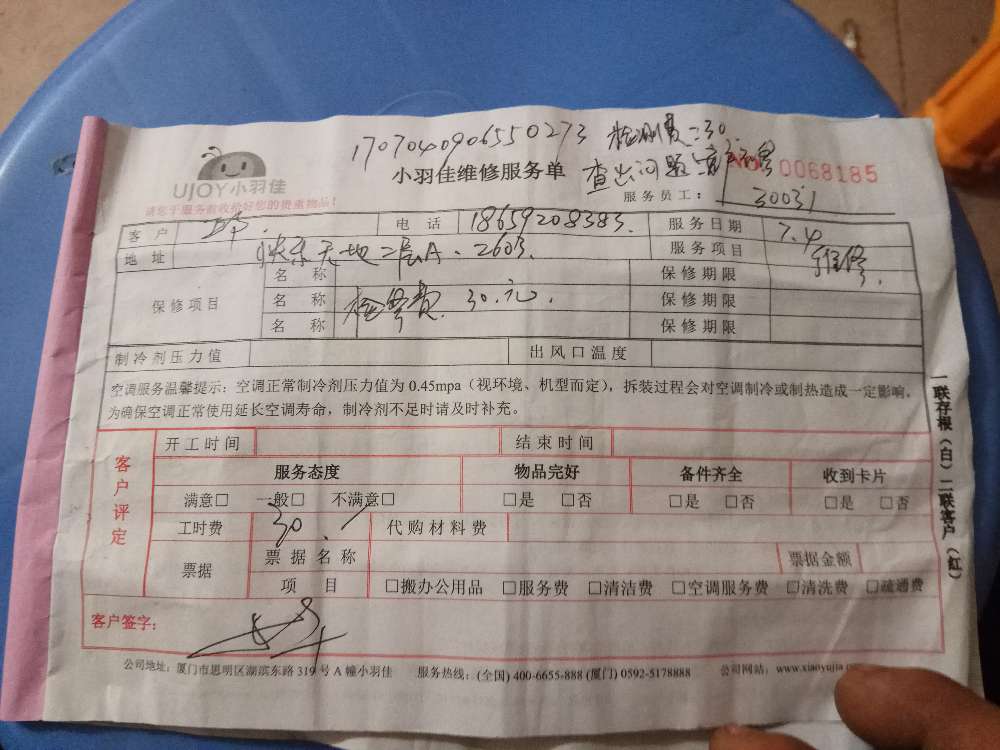 1707040906550273 检测费:30.
UJOY小羽佳
小羽佳维修服务单
查出问题
0068185
请您于服务前收拾好您的贵重物品!
服务员工: 30031
客户 电话 18659208383. 服务日期 7.4
地址 快乐天地二层A.2603. 服务项目 维修.
保修项目
名称 保修期限
名称 检修费 30.元. 保修期限
名称 保修期限
制冷剂压力值 出风口温度
空调服务温馨提示:空调正常制冷剂压力值为 0.45mpa(视环境、机型而定),拆装过程会对空调制冷或制热造成一定影响,
为确保空调正常使用延长空调寿命,制冷剂不足时请及时补充。
客户评定
开工时间 结束时间
服务态度 物品完好 备件齐全 收到卡片
满意□ 一般□ 不满意□ □是 □否 □是 □否 □是 □否
工时费 30. 代购材料费
票据 票据名称 票据金额
项目 □搬办公用品 □服务费 □清洁费 □空调服务费 □清洗费 □疏通费
客户签字:
公司地址:厦门市思明区湖滨东路 319 号 A 幢小羽佳 服务热线:(全国) 400-6655-888 (厦门) 0592-5178888 公司网站:www.xiaoyujia
一联存根(白)二联客户(红)